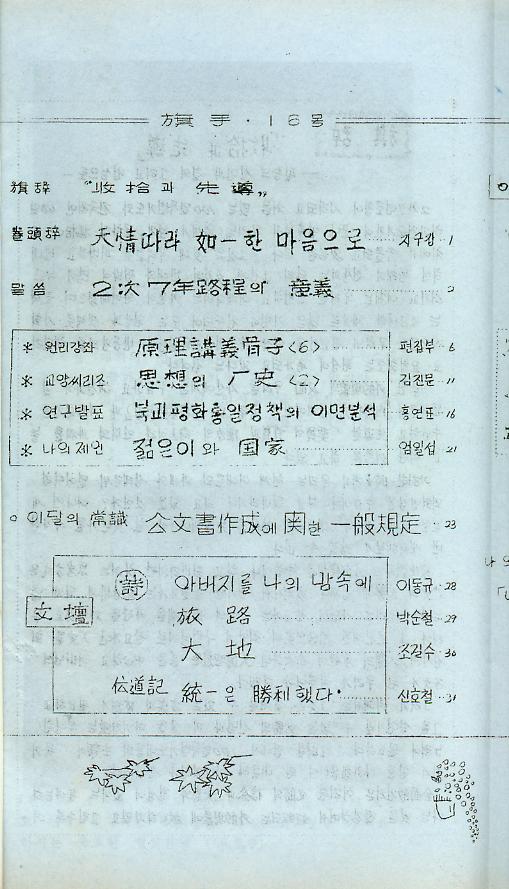 旗手·16号
旗辞 "收拾과 先導"
卷頭辞 天情따라 如一한 마음으로 지구강 1
말씀 2次7年路程의 意義 2
* 원리강좌 原理講義骨子<6> 편집부 6
* 교양씨리즈 思想의 厂史<2> 김진문 11
* 연구발표 북괴평화통일정책의 이면분석 홍연표 16
* 나의제언 젊은이와 国家 엄일섭 21
o 이달의 常識 公文書作成에 関한 一般規定 23
文壇
詩 아버지를 나의 맘속에 이동규 28
旅路 박순철 29
大地 조길수 30
伝道記 統一은 勝利했다· 신호철 31